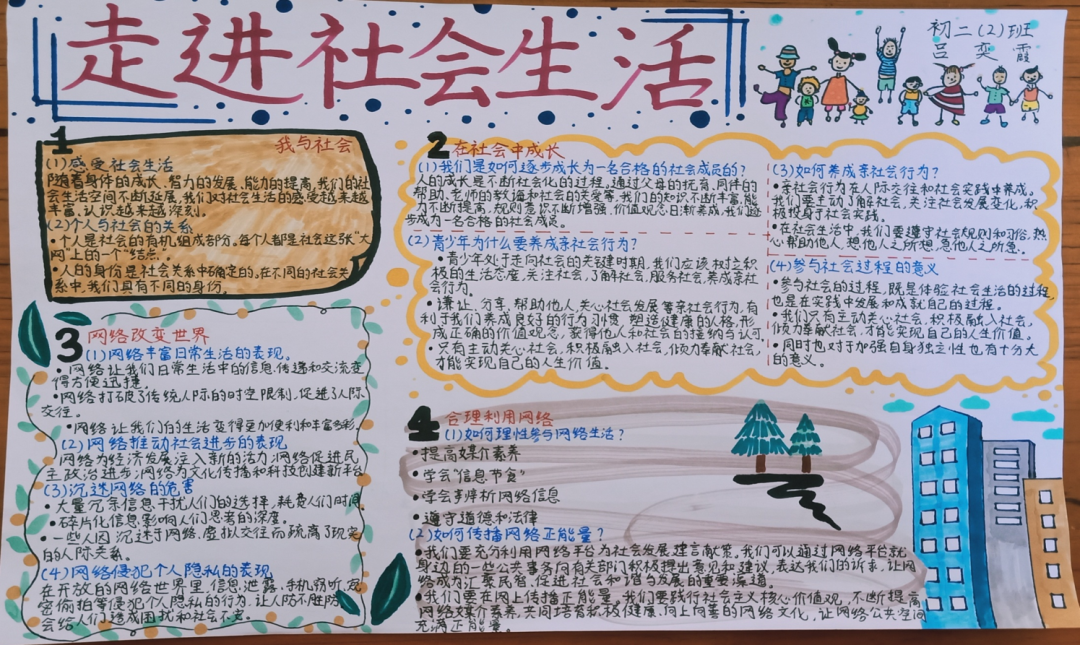 走进社会生活
初二(2)班
吕奕霞
1
我与社会
(1)感受社会生活
随着身体的成长、智力的发展、能力的提高,我们的社
会生活空间不断延展,我们对社会生活的感受越来越
丰富、认识越来越深刻。
(2)个人与社会的关系
•个人是社会的有机组成部分。每个人都是社会这张"大
网"上的一个"结点"。
•人的身份是社会关系中确定的。在不同的社会关
系中,我们具有不同的身份。
2 在社会中成长
(1)我们是如何逐步成长为一名合格的社会成员的?
人的成长是不断社会化的过程,通过父母的抚育、同伴的
帮助、老师的教诲和社会的关爱等,我们的知识不断丰富,能
力不断提高,规则意识不断增强,价值观念日渐养成,我们逐步
成为一名合格的社会成员。
(2)青少年为什么要养成亲社会行为?
•青少年处于走向社会的关键时期,我们应该树立积
极的生活态度,关注社会,了解社会,服务社会,养成亲社
会行为。
•谦让、分享、帮助他人、关心社会发展等亲社会行为,有
利于我们养成良好的行为习惯,塑造健康的人格,形
成正确的价值观念,获得他人和社会的接纳与认可。
•只有主动关心社会,积极融入社会,倾力奉献社会,
才能实现自己的人生价值。
(3)如何养成亲社会行为?
•亲社会行为在人际交往和社会实践中养成。
我们要主动了解社会,关注社会发展变化,积
极投身于社会实践。
•在社会生活中,我们要遵守社会规则和习俗,热
心帮助他人,想他人之所想,急他人之所急。
(4)参与社会过程的意义
•参与社会的过程,既是体验社会生活的过程,
也是在实践中发展和成就自己的过程。
•我们只有主动关心社会,积极融入社会,
倾力奉献社会,才能实现自己的人生价值。
•同时也对于加强自身独立性也有十分大
的意义。
3 网络改变世界
(1)网络丰富日常生活的表现。
•网络让我们日常生活中的信息传递和交流变
得方便迅捷。
•网络打破了传统人际的时空限制,促进了人际
交往。
•网络让我们的生活变得更加便利和丰富多彩。
(2)网络推动社会进步的表现
网络为经济发展注入新的活力;网络促进民
主政治进步;网络为文化传播和科技创建新平台
(3)沉迷网络的危害
•大量冗余信息干扰人们的选择,耗费人们时间
•碎片化信息影响人们思考的深度。
•一些人因沉迷于网络、虚拟交往而疏离了现实
的人际关系。
(4)网络侵犯个人隐私的表现
在开放的网络世界里,信息泄露、手机窃听、
窥密偷拍等侵犯个人隐私的行为,让人防不胜防,
会给人们造成困扰和社会不安。
4 合理利用网络
(1)如何理性参与网络生活?
•提高媒介素养
•学会"信息节食"
•学会辨析网络信息
•遵守道德和法律
(2)如何传播网络正能量?
•我们要充分利用网络平台为社会发展建言献策。我们可以通过网络平台就
身边的一些公共事务向有关部门积极提出意见和建议,表达我们的诉求,让网
络成为汇聚民智、促进社会和谐与发展的重要渠道。
•我们要在网上传播正能量。我们要践行社会主义核心价值观,不断提高
网络媒介素养,共同培育积极健康、向上向善的网络文化,让网络公共空间
充满正能量。